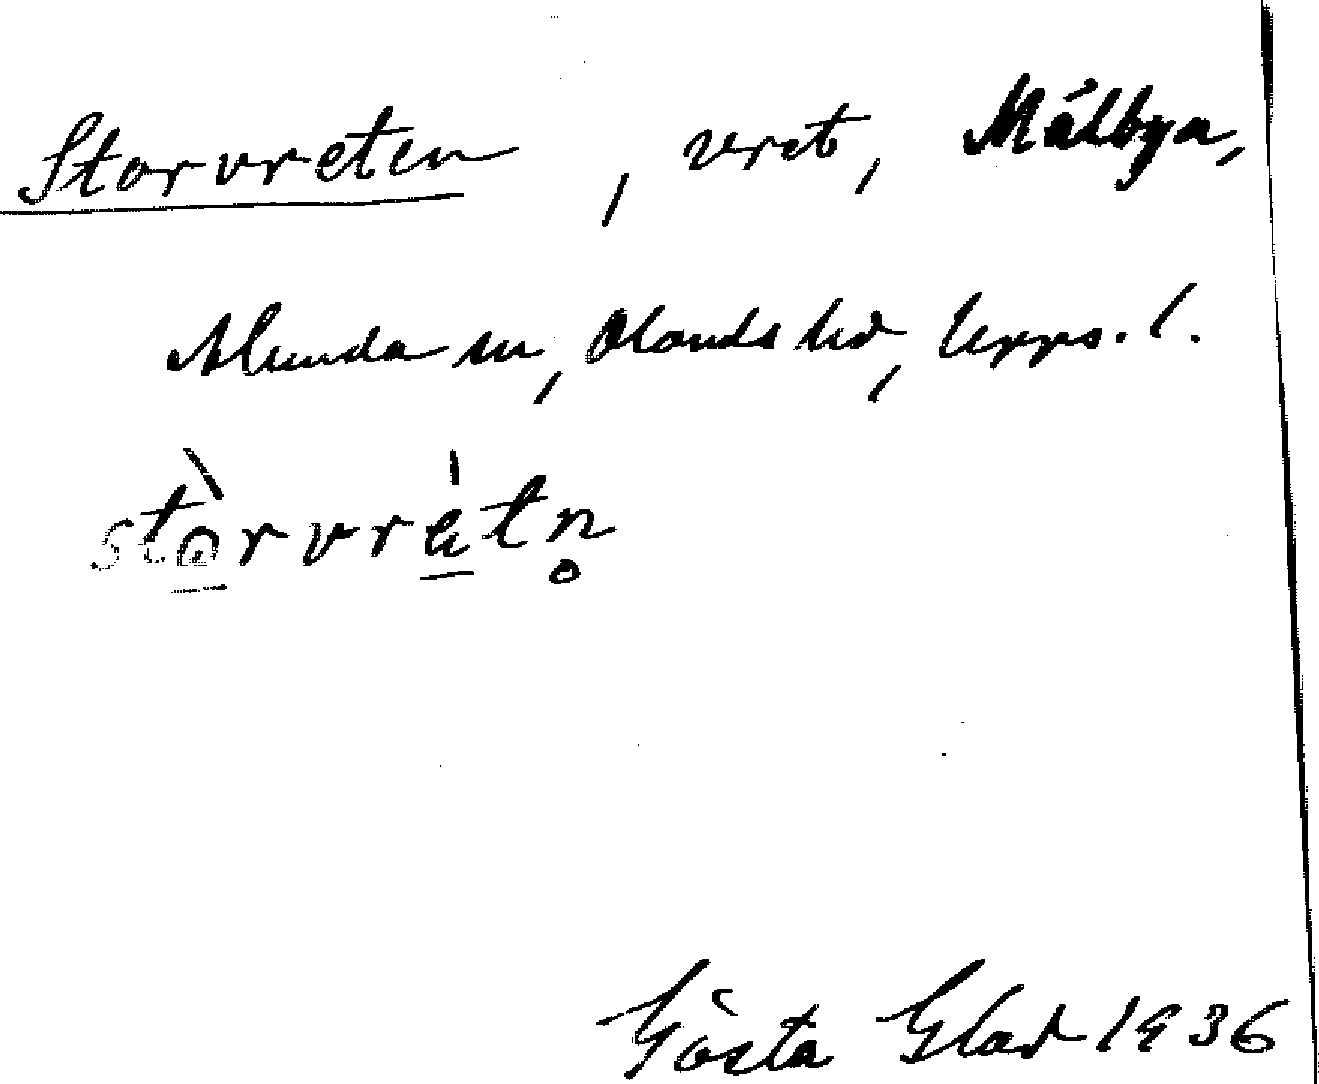 Storvreten, vret, Målbya,
Alunda sn, Olands hd, Upps. l.
stò̱rvrè̱tn̥
Gösta Glad 1936